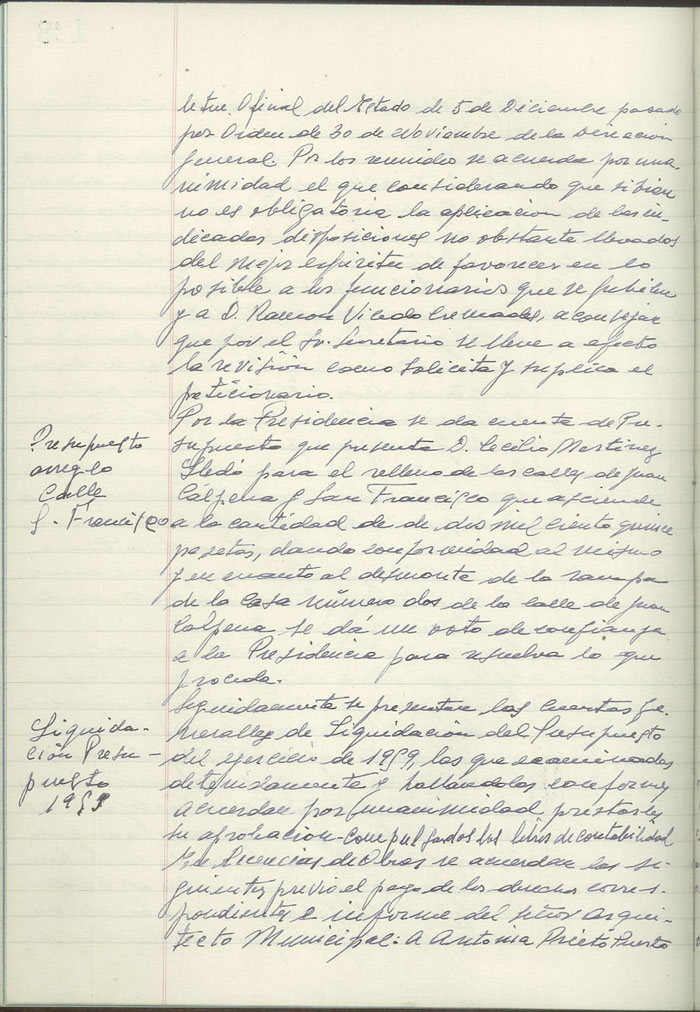 letin Oficial del Estado de 5 de Diciembre pasado
por Orden de 30 de Noviembre de la Dirección
General. Por los reunidos se acuerda por una-
nimidad el que considerando que si bien
no es obligatoria la aplicacion de las in-
dicadas disposiciones no obstante llevados
del mejor espiritu de favorecer en lo
posible a los funcionarios que se jubilen
y a D. Ramon Vicedo Cremades, aconsejar
que por el Sr. Secretario se lleve a efecto
la revisión como solicita y suplica el
peticionario.
Por la Presidencia se da cuenta de Pre-
Presupuesto
arreglo
Calle
S. Francisco
supuesto que presenta D. Cecilio Martinez
Lledó para el relleno de las calles de Juan
Cálpena y San Francisco que asciende
a la cantidad de de dos mil ciento quince
pesetas, dando conformidad al mismo
y en cuanto al desmonte de la rampa
de la casa número dos de la calle de Juan
Calpena se dá un voto de confianza
a la Presidencia para resuelva lo que
proceda.
Seguidamente se presentan las Cuentas Ge-
Liquida-
ción Presu-
puesto
1959
nerales de Liquidación del Presupuesto
del ejercicio de 1959, las que examinadas
detenidamente y hallandolas conformes
acuerdan por unanimidad prestarles
su aprobación - compulsados los libros de contabilidad
de licencias de Obras se acuerdan las si-
guientes previo el pago de los derechos corres-
pondientes e informe del señor Arqui-
tecto Municipal: A Antonia Prieto Puerto